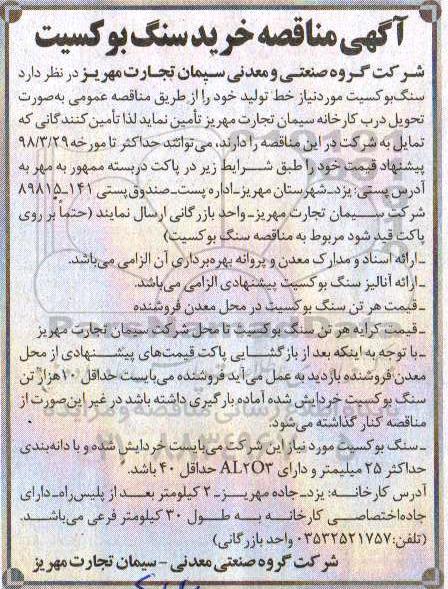 آگهی مناقصه خرید سنگ بوکسیت
شرکت گروه صنعتی و معدنی سیمان تجارت مهریز در نظر دارد
سنگ بوکسیت موردنیاز خط تولید خود را از طریق مناقصه عمومی به‌صورت
تحویل درب کارخانه سیمان تجارت مهریز تأمین نماید لذا تأمین‌کنندگانی که
تمایل به شرکت در این مناقصه را دارند، می‌توانند حداکثر تا مورخه ۹۸/۳/۲۹
پیشنهاد قیمت خود را طبق شرایط زیر در پاکت دربسته ممهور به مهر به
آدرس پستی: یزد-شهرستان مهریز-اداره پست-صندوق پستی ۱۴۱-۸۹۸۱۵
شرکت سیمان تجارت مهریز-واحد بازرگانی ارسال نمایند (حتماً بر روی
پاکت قید شود مربوط به مناقصه سنگ بوکسیت)
-ارائه اسناد و مدارک معدن و پروانه بهره‌برداری آن الزامی می‌باشد.
-ارائه آنالیز سنگ بوکسیت پیشنهادی الزامی می‌باشد.
-قیمت هر تن سنگ بوکسیت در محل معدن فروشنده
-قیمت کرایه هر تن سنگ بوکسیت تا محل شرکت سیمان تجارت مهریز
-با توجه به اینکه بعد از بازگشایی پاکت قیمت‌های پیشنهادی از محل
معدن فروشنده بازدید به عمل می‌آید فروشنده می‌بایست حداقل ۱۰هزار تن
سنگ بوکسیت خردایش شده آماده بارگیری داشته باشد در غیر این‌صورت از
مناقصه کنار گذاشته می‌شود.
-سنگ بوکسیت مورد نیاز این شرکت می‌بایست خردایش شده و با دانه‌بندی
حداکثر ۲۵ میلیمتر و دارای AL۲O۳ حداقل ۴۰ باشد.
آدرس کارخانه: یزد-جاده مهریز-۲ کیلومتر بعد از پلیس‌راه-دارای
جاده‌اختصاصی کارخانه به طول ۳۰ کیلومتر فرعی می‌باشد.
(تلفن: ۰۳۵۳۲۵۲۱۷۵۷ واحد بازرگانی)
شرکت گروه صنعتی معدنی - سیمان تجارت مهریز